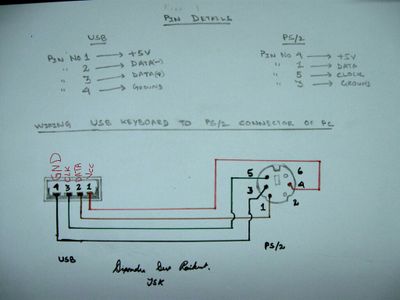 PIN DETAILS
USB
PIN NO 1 → +5V
" 2 → DATA(-)
" 3 → DATA(+)
" 4 → GROUND
PS/2
PIN NO 4 → +5V
" 1 → DATA
" 5 → CLOCK
" 3 → GROUND
WIRING USB KEYBOARD TO PS/2 CONNECTOR OF PC
GND CLK DATA Vcc
4 3 2 1
5 6
3 4
1 2
USB
PS/2